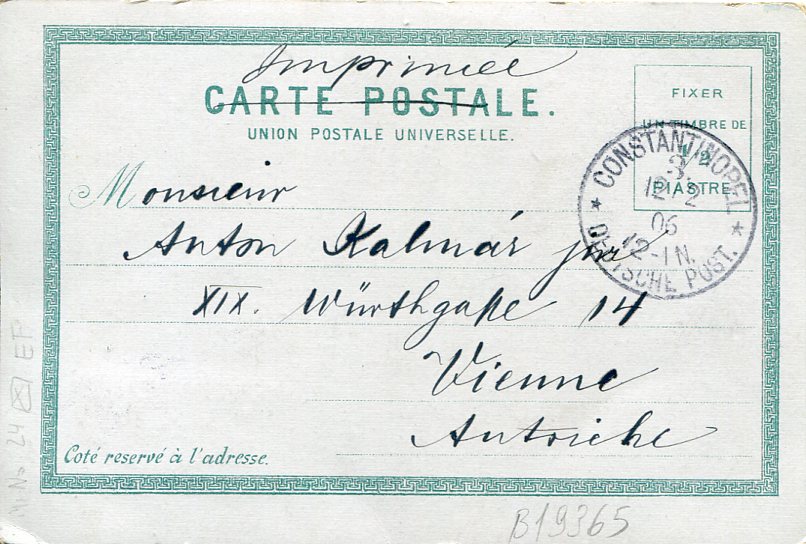 Imprimée
CARTE POSTALE.
UNION POSTALE UNIVERSELLE.
FIXER
UN TIMBRE DE
PIASTRE
CONSTANTINOPEL
3
12 12
06
12-1N.
DEUTSCHE POST.
Monsieur
Anton Kalmár jur
XIX. Würthgaße 14
Vienne
Autriche
Coté reservé à l'adresse.
B19365